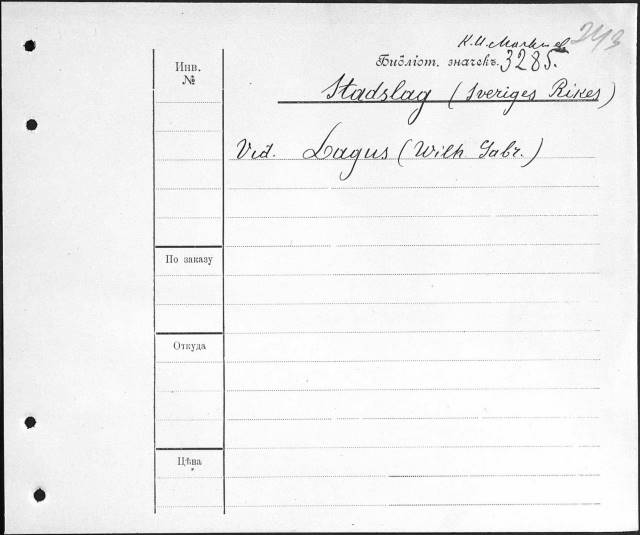 243
К.И.
Библіот. значекъ. 3285.
Инв.
№
Stadslag (Sveriges Rikes)
Vid. Lagus (Wilh Gabr.)
По заказу
Откуда
Цѣна